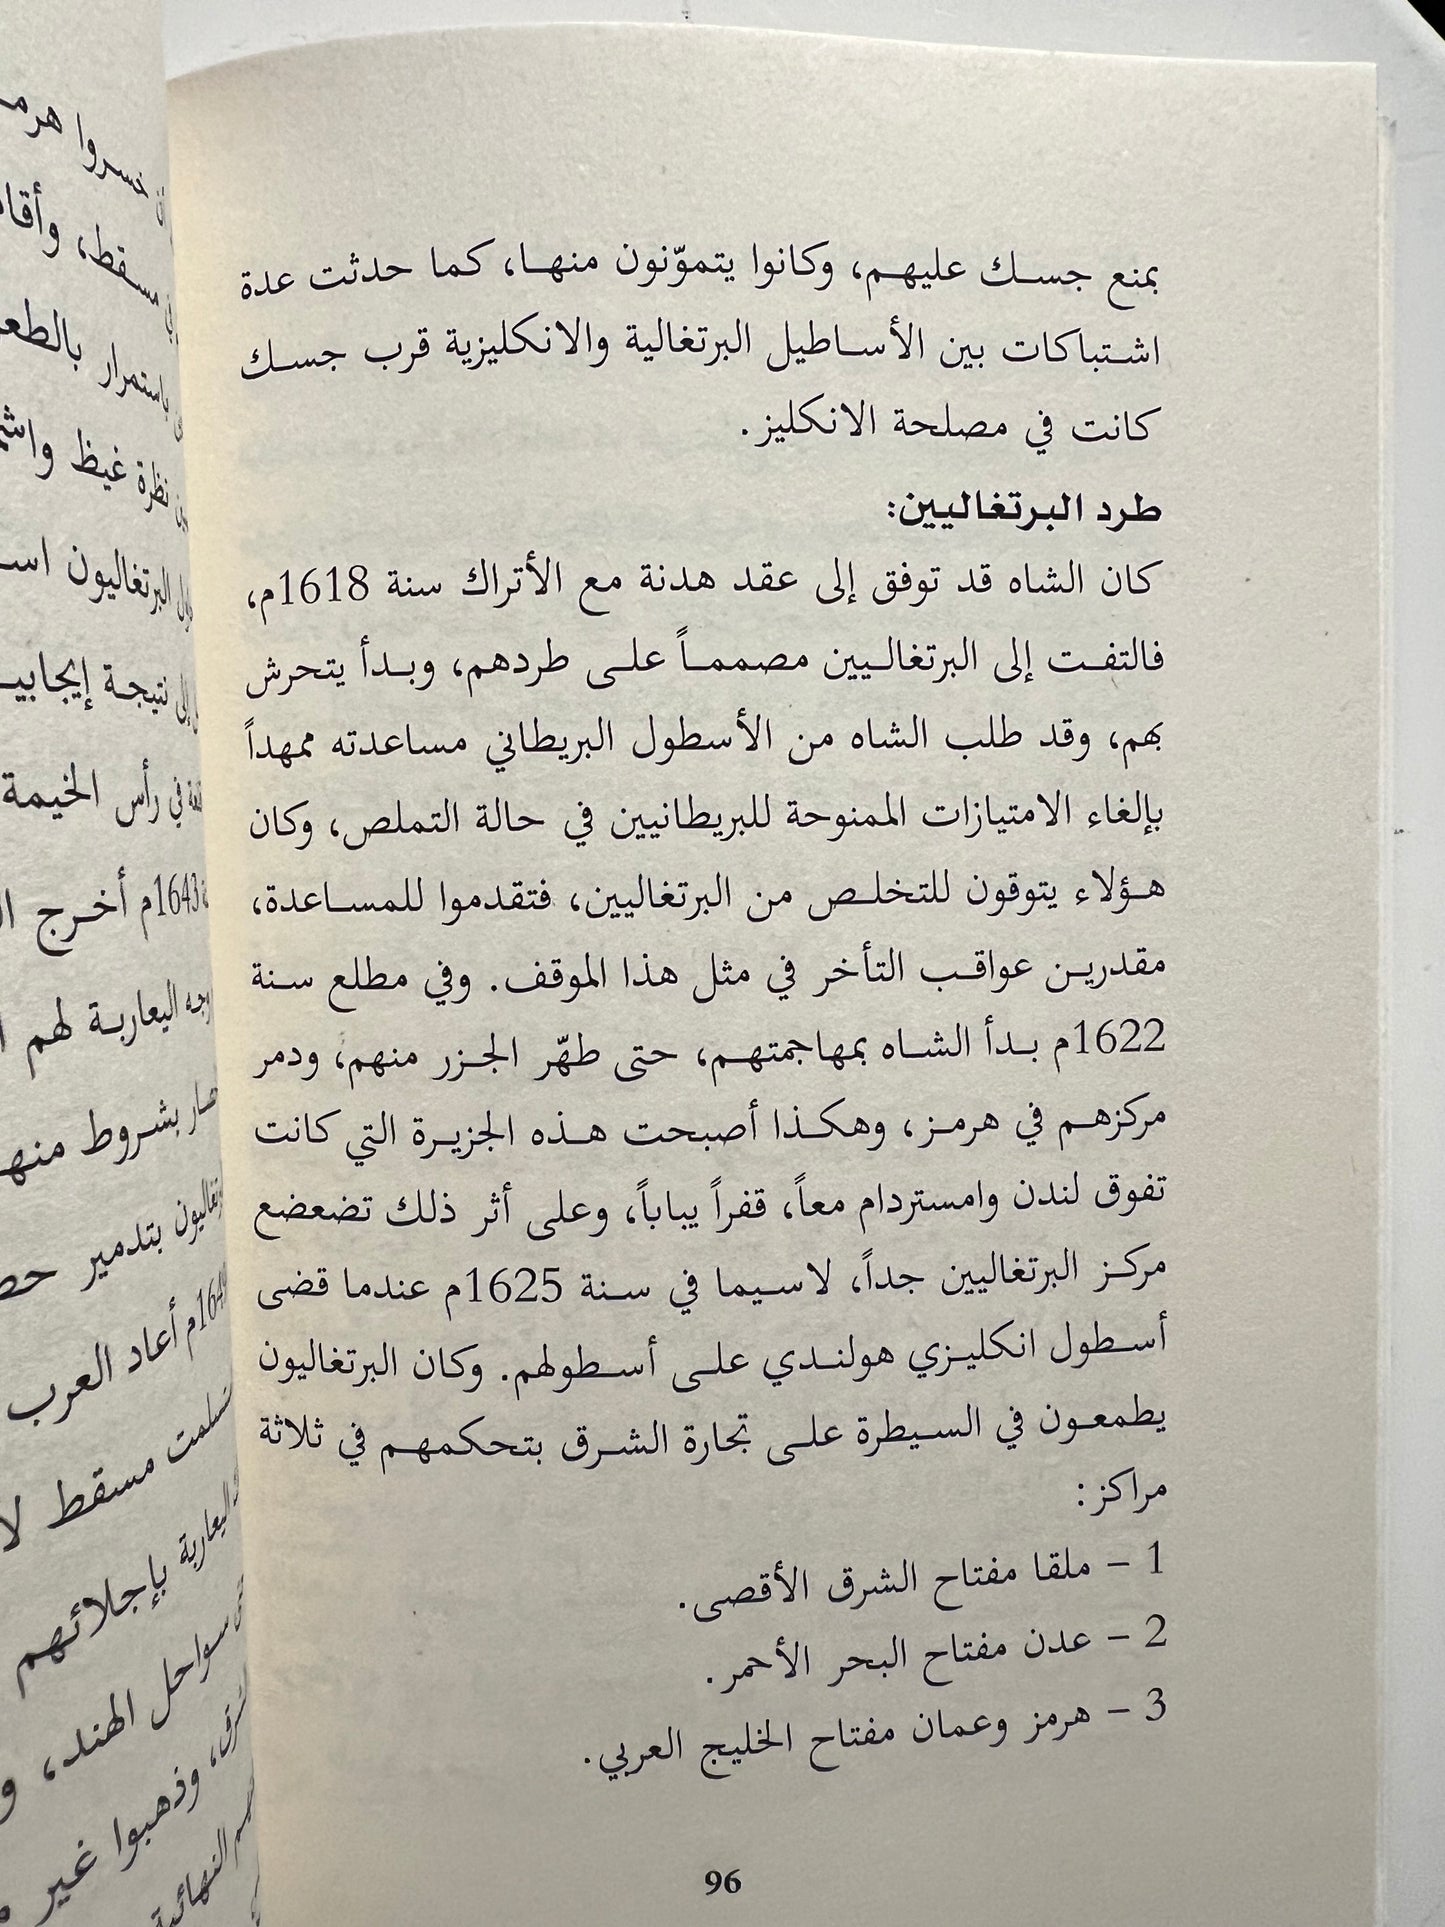 بمنع جسك عليهم، وكانوا يتموّنون منها، كما حدثت عدة
اشتباكات بين الأساطيل البرتغالية والانكليزية قرب جسك
كانت في مصلحة الانكليز.
طرد البرتغاليين:
كان الشاه قد توفق إلى عقد هدنة مع الأتراك سنة 1618م،
فالتفت إلى البرتغاليين مصمماً على طردهم، وبدأ يتحرش
بهم، وقد طلب الشاه من الأسطول البريطاني مساعدته ممهداً
بإلغاء الامتيازات الممنوحة للبريطانيين في حالة التملص، وكان
هؤلاء يتوقون للتخلص من البرتغاليين، فتقدموا للمساعدة،
مقدرين عواقب التأخر في مثل هذا الموقف. وفي مطلع سنة
1622م بدأ الشاه بمهاجمتهم، حتى طهّر الجزر منهم، ودمر
مركزهم في هرمز، وهكذا أصبحت هذه الجزيرة التي كانت
تفوق لندن وامستردام معاً، قفراً يباباً، وعلى أثر ذلك تضعضع
مركز البرتغاليين جداً، لاسيما في سنة 1625م عندما قضى
أسطول انكليزي هولندي على أسطولهم. وكان البرتغاليون
يطمعون في السيطرة على تجارة الشرق بتحكمهم في ثلاثة
مراكز:
1 – ملقا مفتاح الشرق الأقصى.
2 – عدن مفتاح البحر الأحمر.
3 – هرمز وعمان مفتاح الخليج العربي.
96
خسروا
مسقط،
باستمرار
نظرة غيظ
البرتغاليون
نتيجة
في رأس الخيمة
1643م أخرج
اليعاربة لهم
بشروط
بتدمير
أعاد العرب
مسقط
اليعاربة بإجلائهم
سواحل الهند،
وذهبوا غير
النهائية